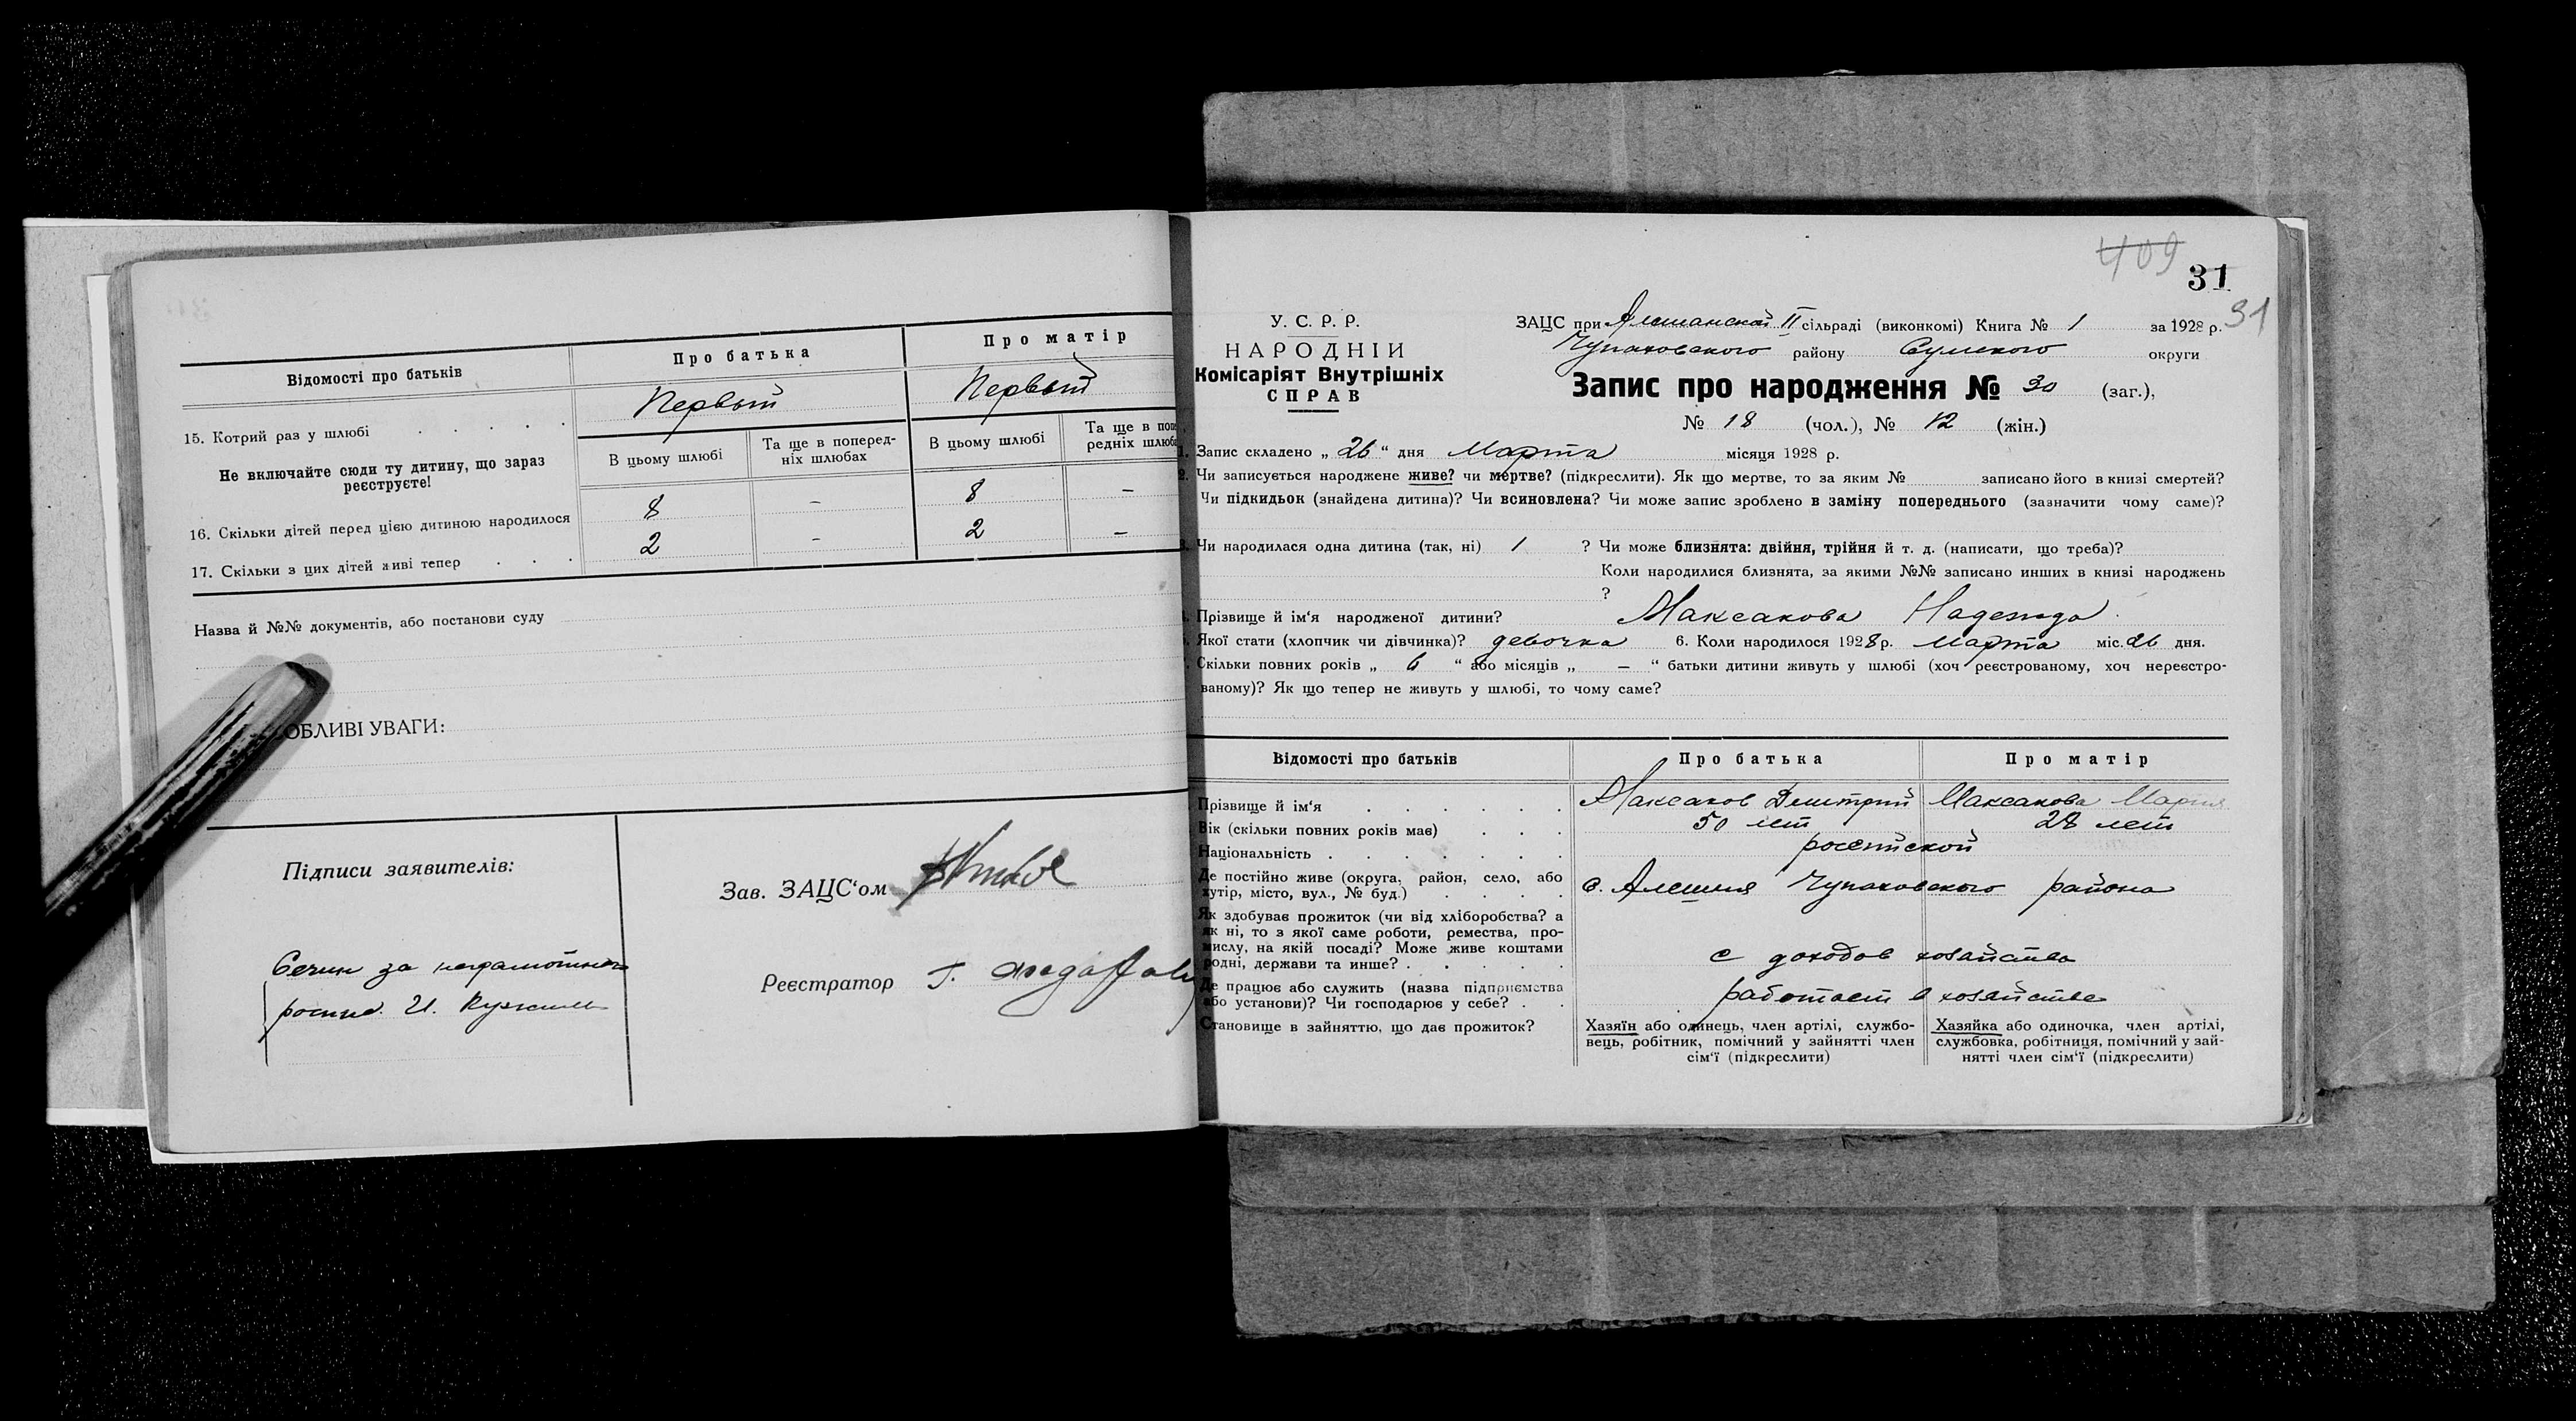 Відомості про батьків
Про батька
Про матір
15. Котрий раз у шлюбі
Первый
Первый
Не включайте сюди ту дитину, що зараз
реєструєте!
В цьому шлюбі
Та ще в поперед-
ніх шлюбах
В цьому шлюбі
Та ще в попе
редніх шлюба
16. Скільки дітей перед цією дитиною народилося
8
-
8
-
17. Скільки з цих дітей живі тепер
2
-
2
-
Назва й №№ документів, або постанови суду
ОБЛИВІ УВАГИ:
Підписи заявителів:
за неграмотного
И.
Зав. ЗАЦС'ом
Реєстратор Т.
409
31
31
У. С. Р. Р.
НАРОДНІЙ
Комісаріят Внутрішніх
СПРАВ
ЗАЦС при Алешанской II сільраді (виконкомі) Книга № 1 за 1928 р.
Чупаховского району Сумского округи
Запис про народження № 30 (заг.),
№ 18 (чол.), № 12 (жін.)
1. Запис складено „ 26 “ дня Марта місяця 1928 р.
2. Чи записується народжене живе? чи мертве? (підкреслити). Як що мертве, то за яким № записано його в книзі смертей?
Чи підкидьок (знайдена дитина)? Чи всиновлена? Чи може запис зроблено в заміну попереднього (зазначити чому саме)?
Чи народилася одна дитина (так, ні) 1 ? Чи може близнята: двійня, трійня й т. д. (написати, що треба)?
Коли народилися близнята, за якими №№ записано инших в книзі народжень
?
Прізвище й ім'я народженої дитини? Максакова Надежда.
Якої стати (хлопчик чи дівчинка)? девочка 6. Коли народилося 1928 р. Марта міс. 26 дня.
Скільки повних років „ 6 “ або місяців „ – “ батьки дитини живуть у шлюбі (хоч реєстрованому, хоч нереєстро-
ваному)? Як що тепер не живуть у шлюбі, то чому саме?
Відомості про батьків
Про батька
Про матір
Прізвище й ім'я
Максаков Дмитрий
Максакова Мария
Вік (скільки повних років має)
50 лет
28 лет
Національність
російской
Де постійно живе (округа, район, село, або
хутір, місто, вул., № буд.)
с. Алешня Чупаховского района
Як здобуває прожиток (чи від хліборобства? а
як ні, то з якої саме роботи, ремества, про-
мислу, на якій посаді? Може живе коштами
родні, держави та инше?
с доходов хозайства
Де працює або служить (назва підприємства
або установи)? Чи господарює у себе?
работает в хозайстве
Становище в зайняттю, що дає прожиток?
Хазяїн або одинець, член артілі, службо-
вець, робітник, помічний у зайнятті член
сім'ї (підкреслити)
Хазяйка або одиночка, член артілі,
службовка, робітниця, помічний у зай-
нятті член сім'ї (підкреслити)